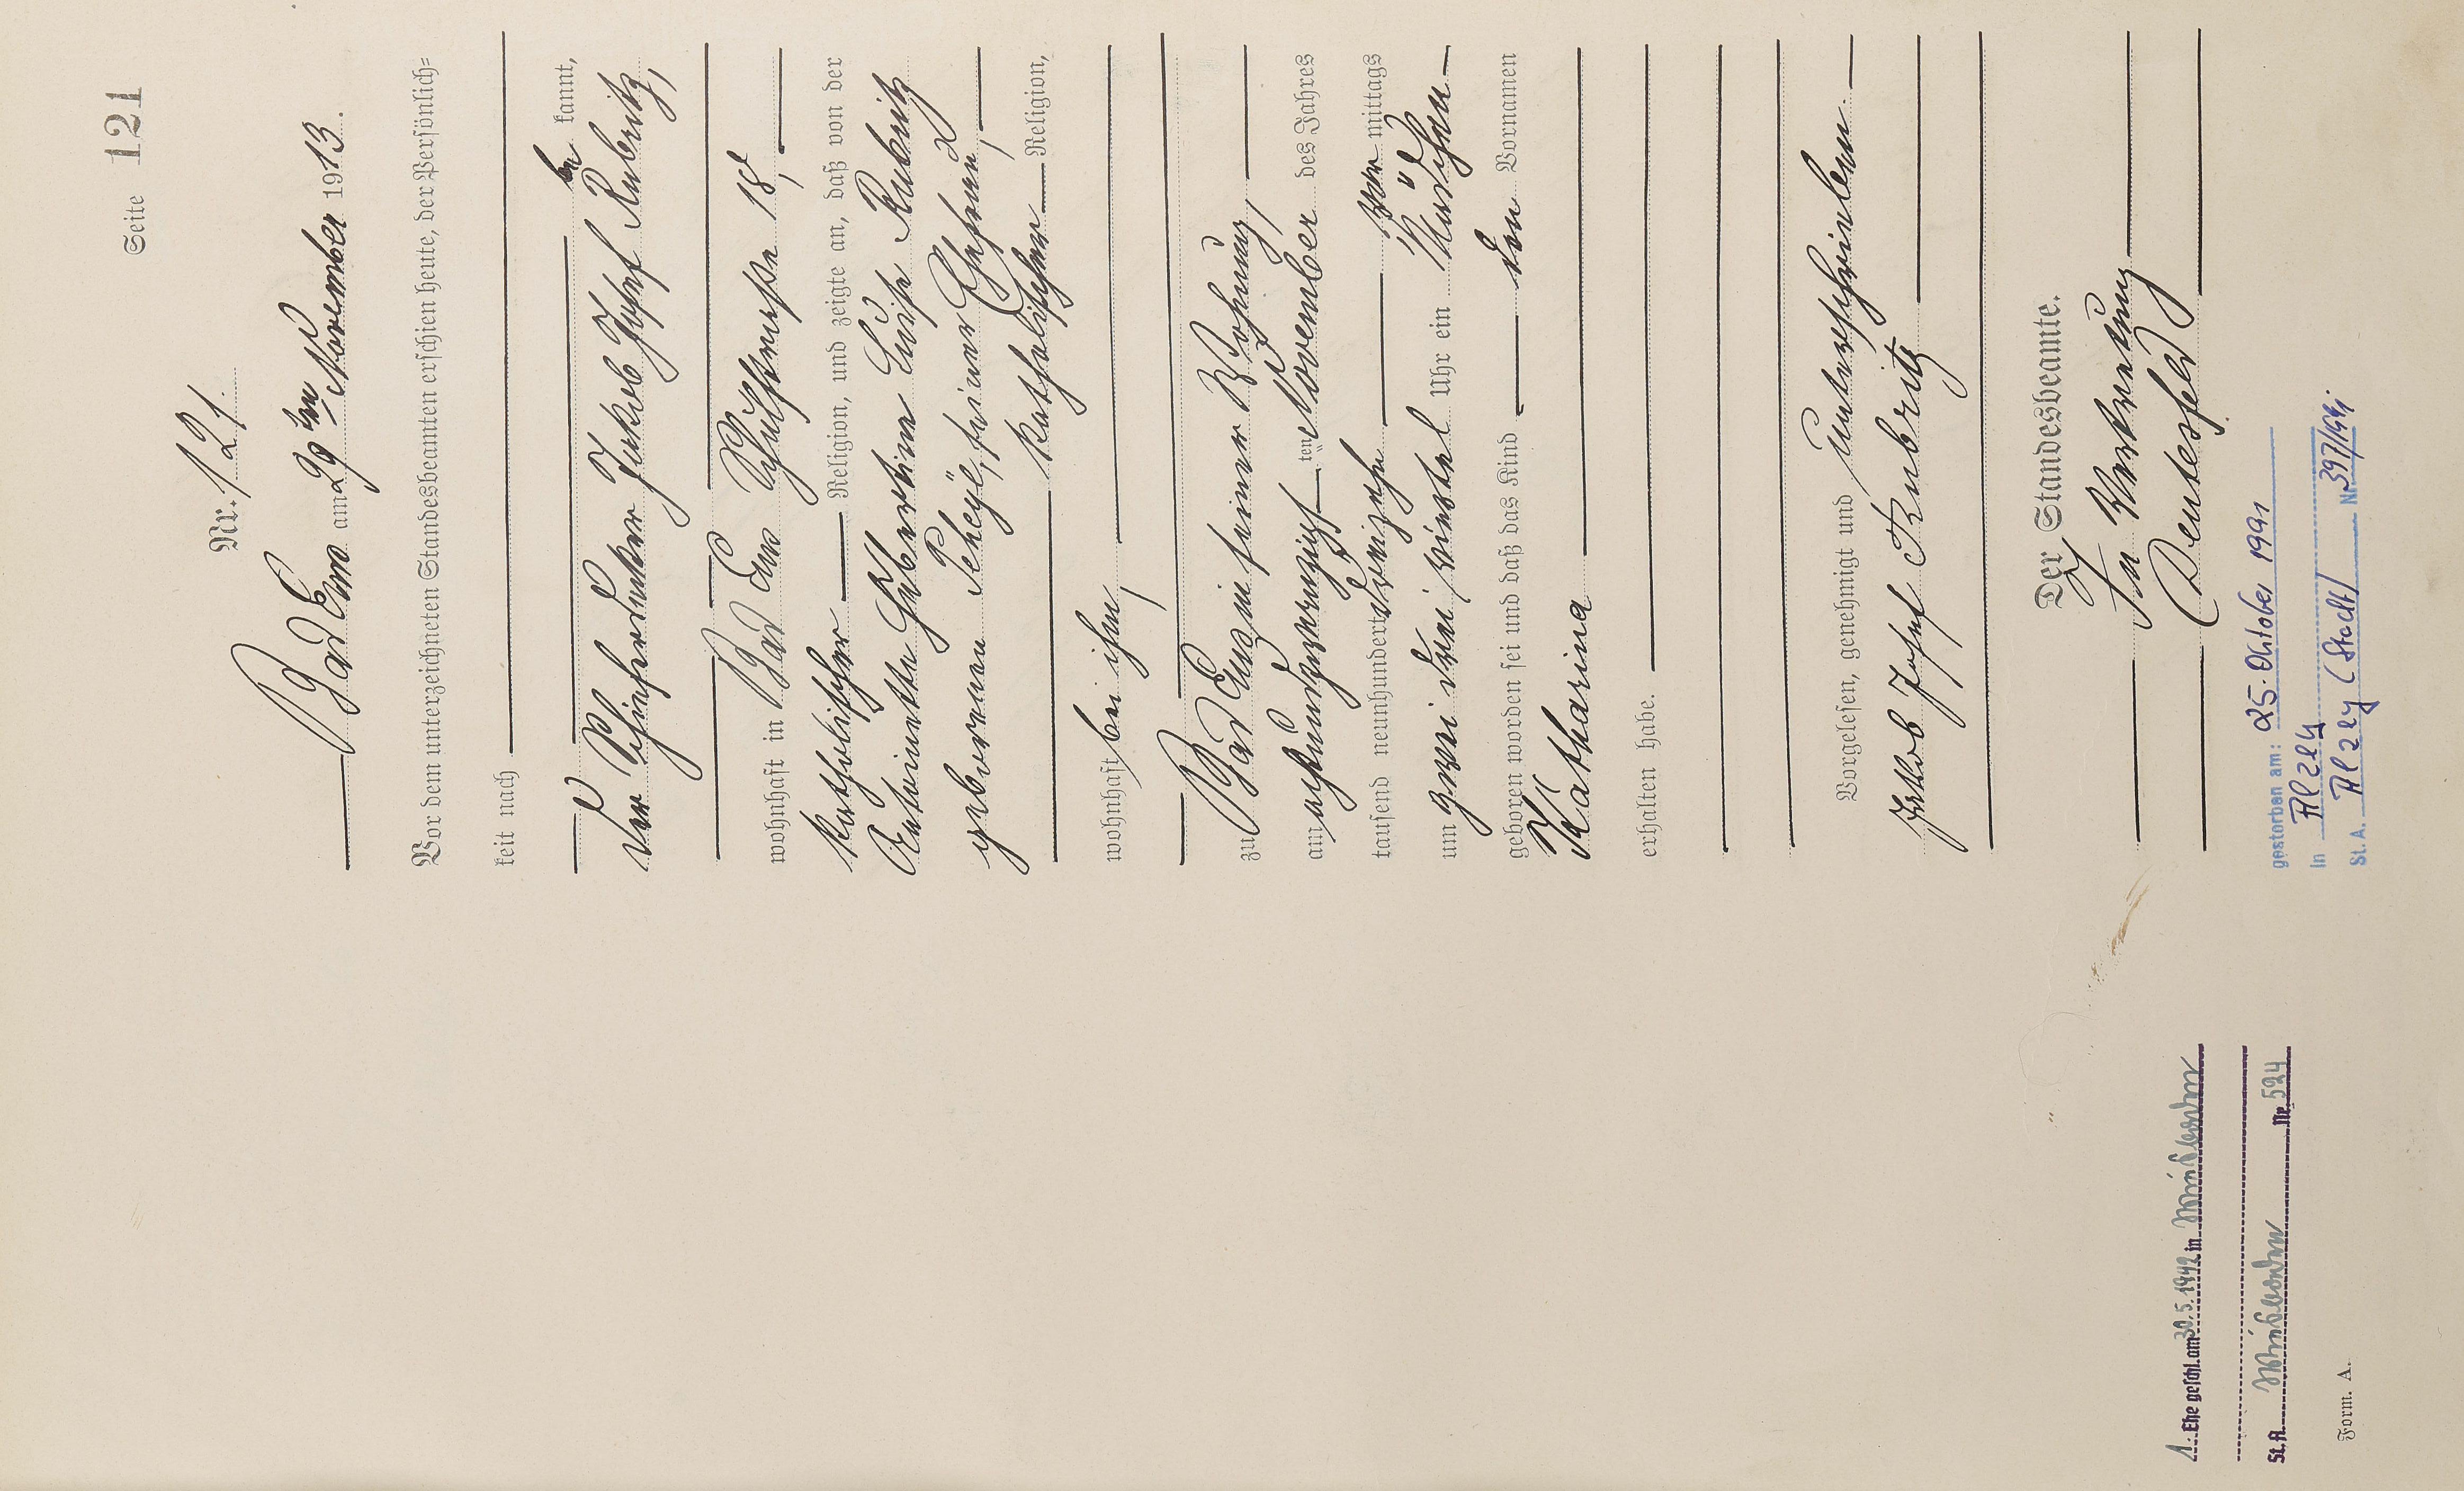 Seite 121
Nr. 121.
Bad Ems am 29ten November 1913.
Vor dem unterzeichneten Standesbeamten erschien heute, der Persönlich=
keit nach
be kannt,
der Schieferdecker Jakob Josef Rubritz,
wohnhaft in Bad Ems Schulstrasse 18,
katholischer Religion, und zeigte an, daß von der
Antoinette Hubertine Luise Rubritz
geborenen seiner Ehefrau,
katholischer Religion,
wohnhaft bei ihm,
zu Bad Ems in seiner Wohnung,
am achtundzwanzigsten November des Jahres
tausend neunhundert dreizehn vor mittags
um zwei drei viertel Uhr ein Mädchen
geboren worden sei und daß das Kind den Vornamen
Katharina
erhalten habe.
Vorgelesen, genehmigt und unterschrieben.
Jakob Josef Rubritz
Der Standesbeamte.
In Vertretung
Deutesfeld
gestorben am: 25. Oktober 1991
in Alzey
St. A. Alzey (Stadt) Nr. 397/1991
1. Ehe geschl. am 30.5.1942 in Wiesbaden
St.A. Wiesbaden Nr. 524
Form. A.